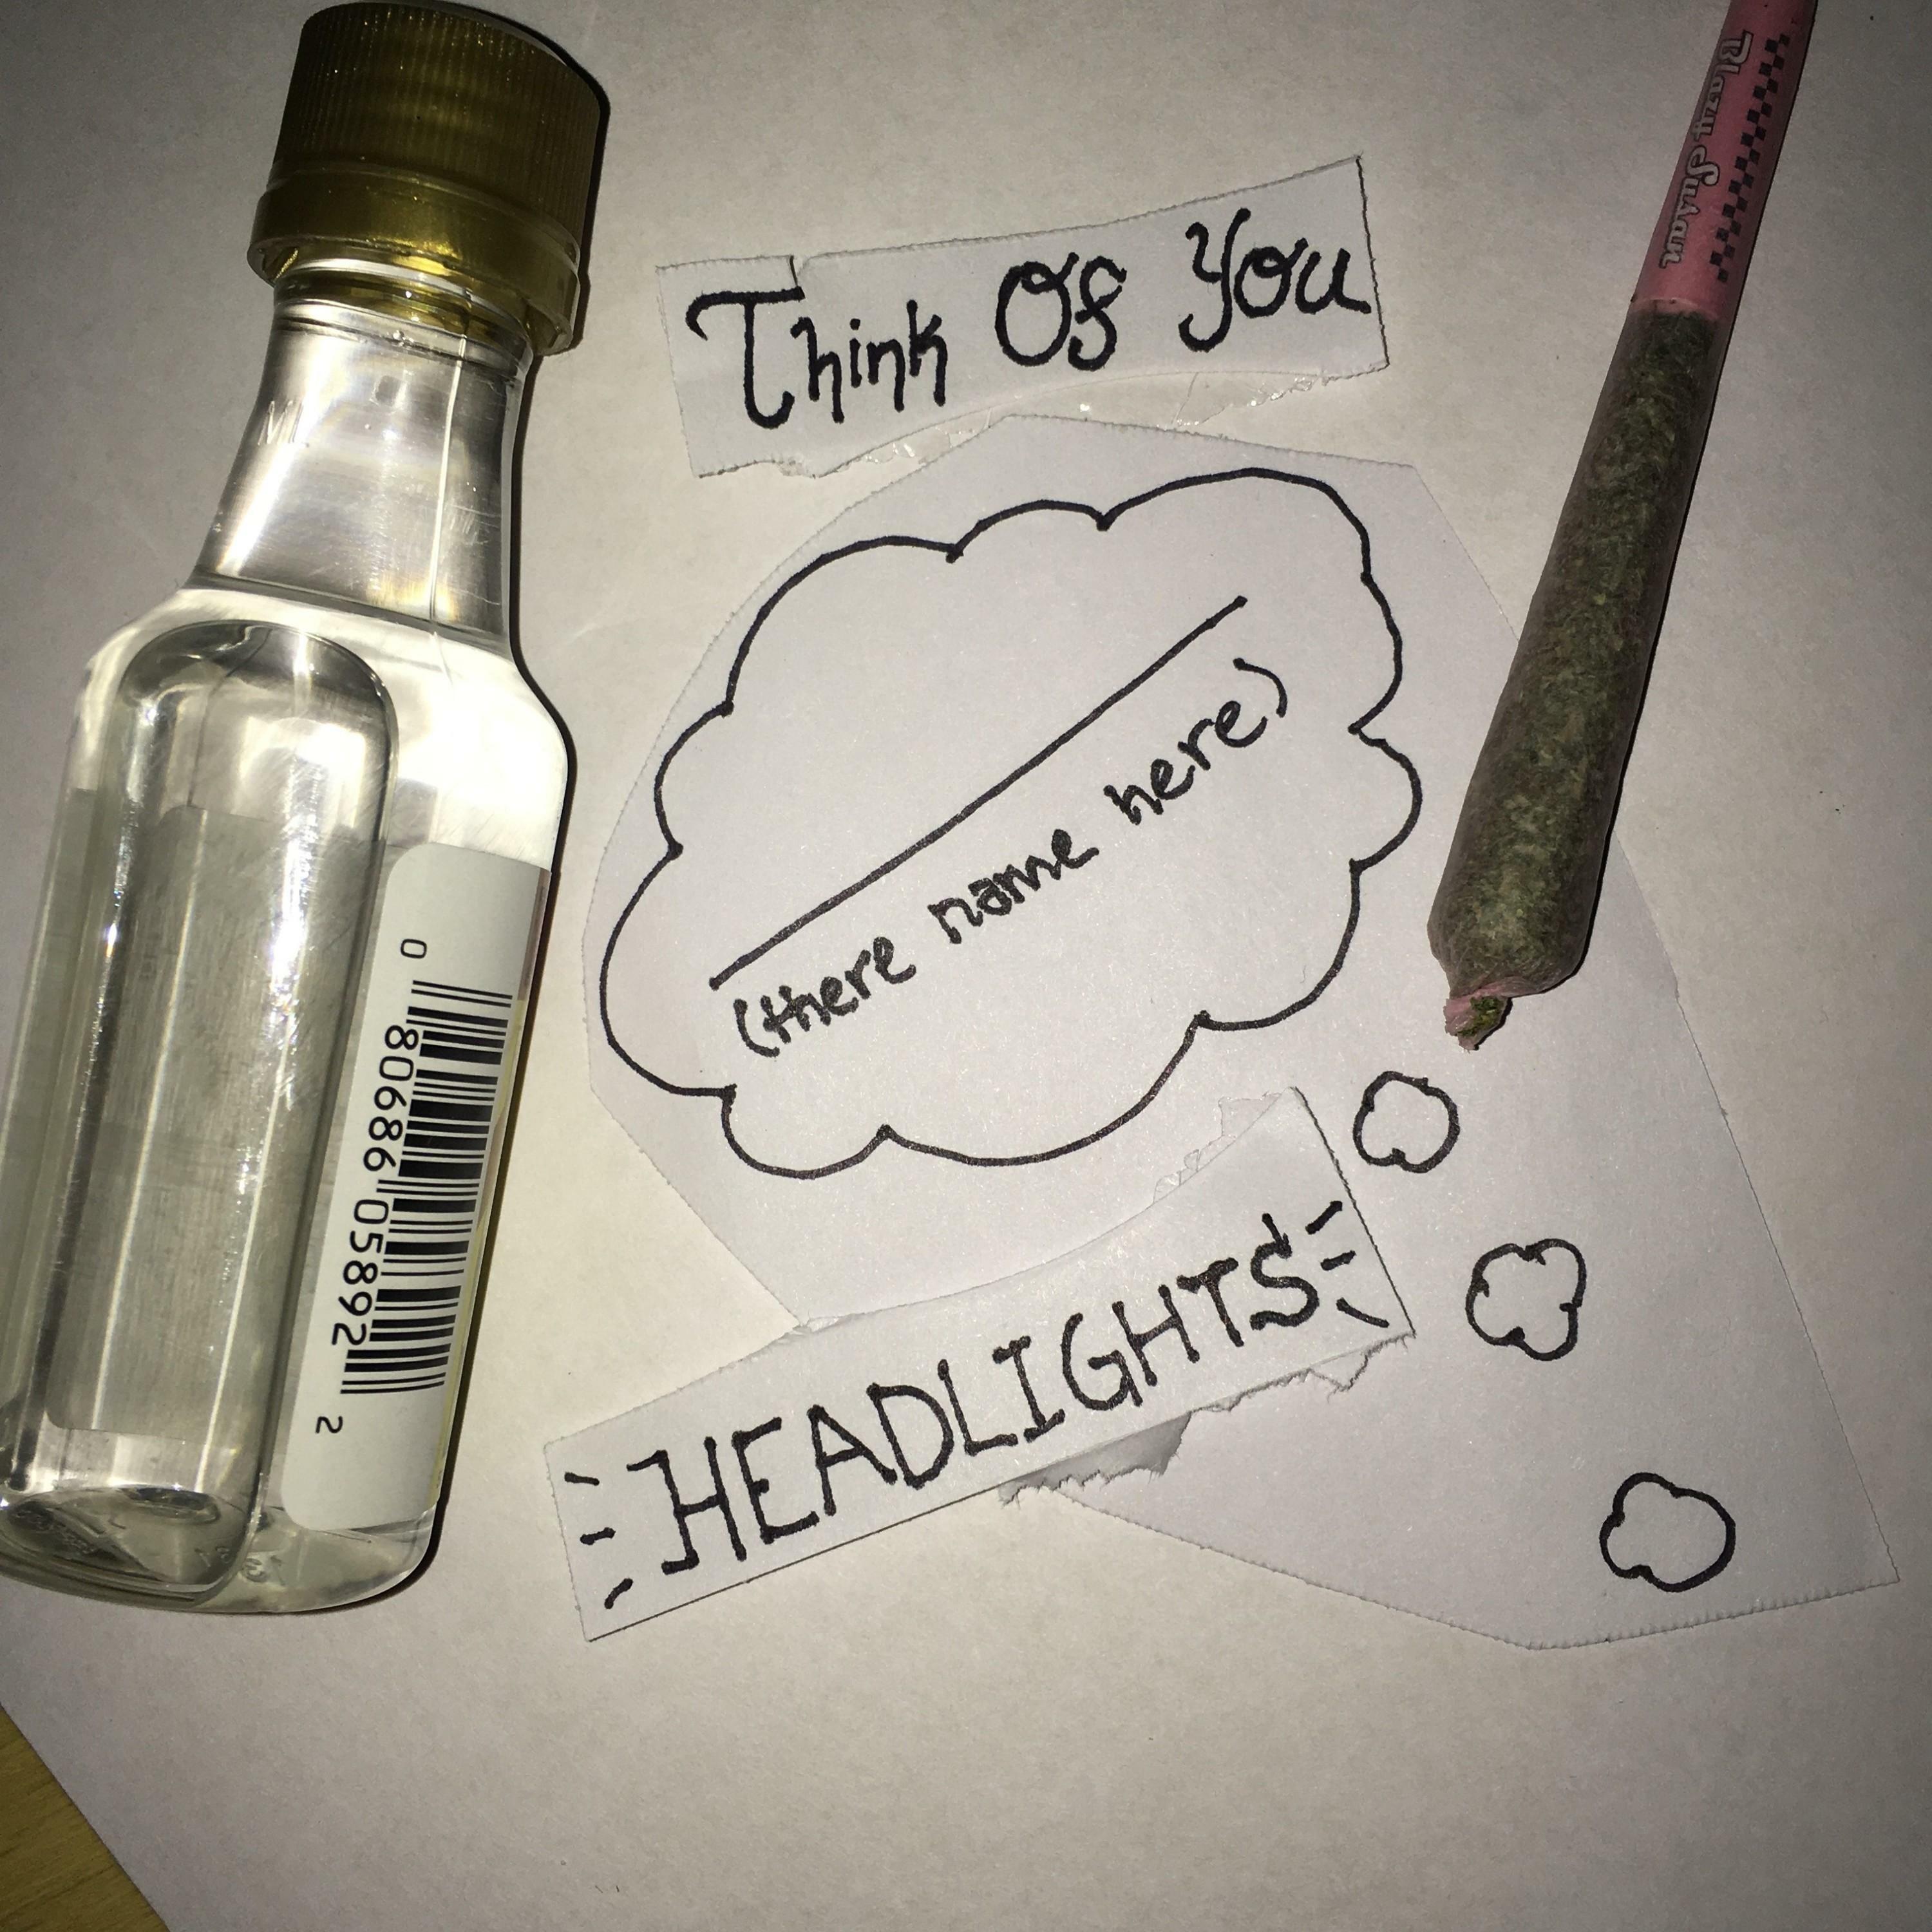 Blazy Susan
Think Of You
(there name here)
HEADLIGHTS
0 80686 05892 2